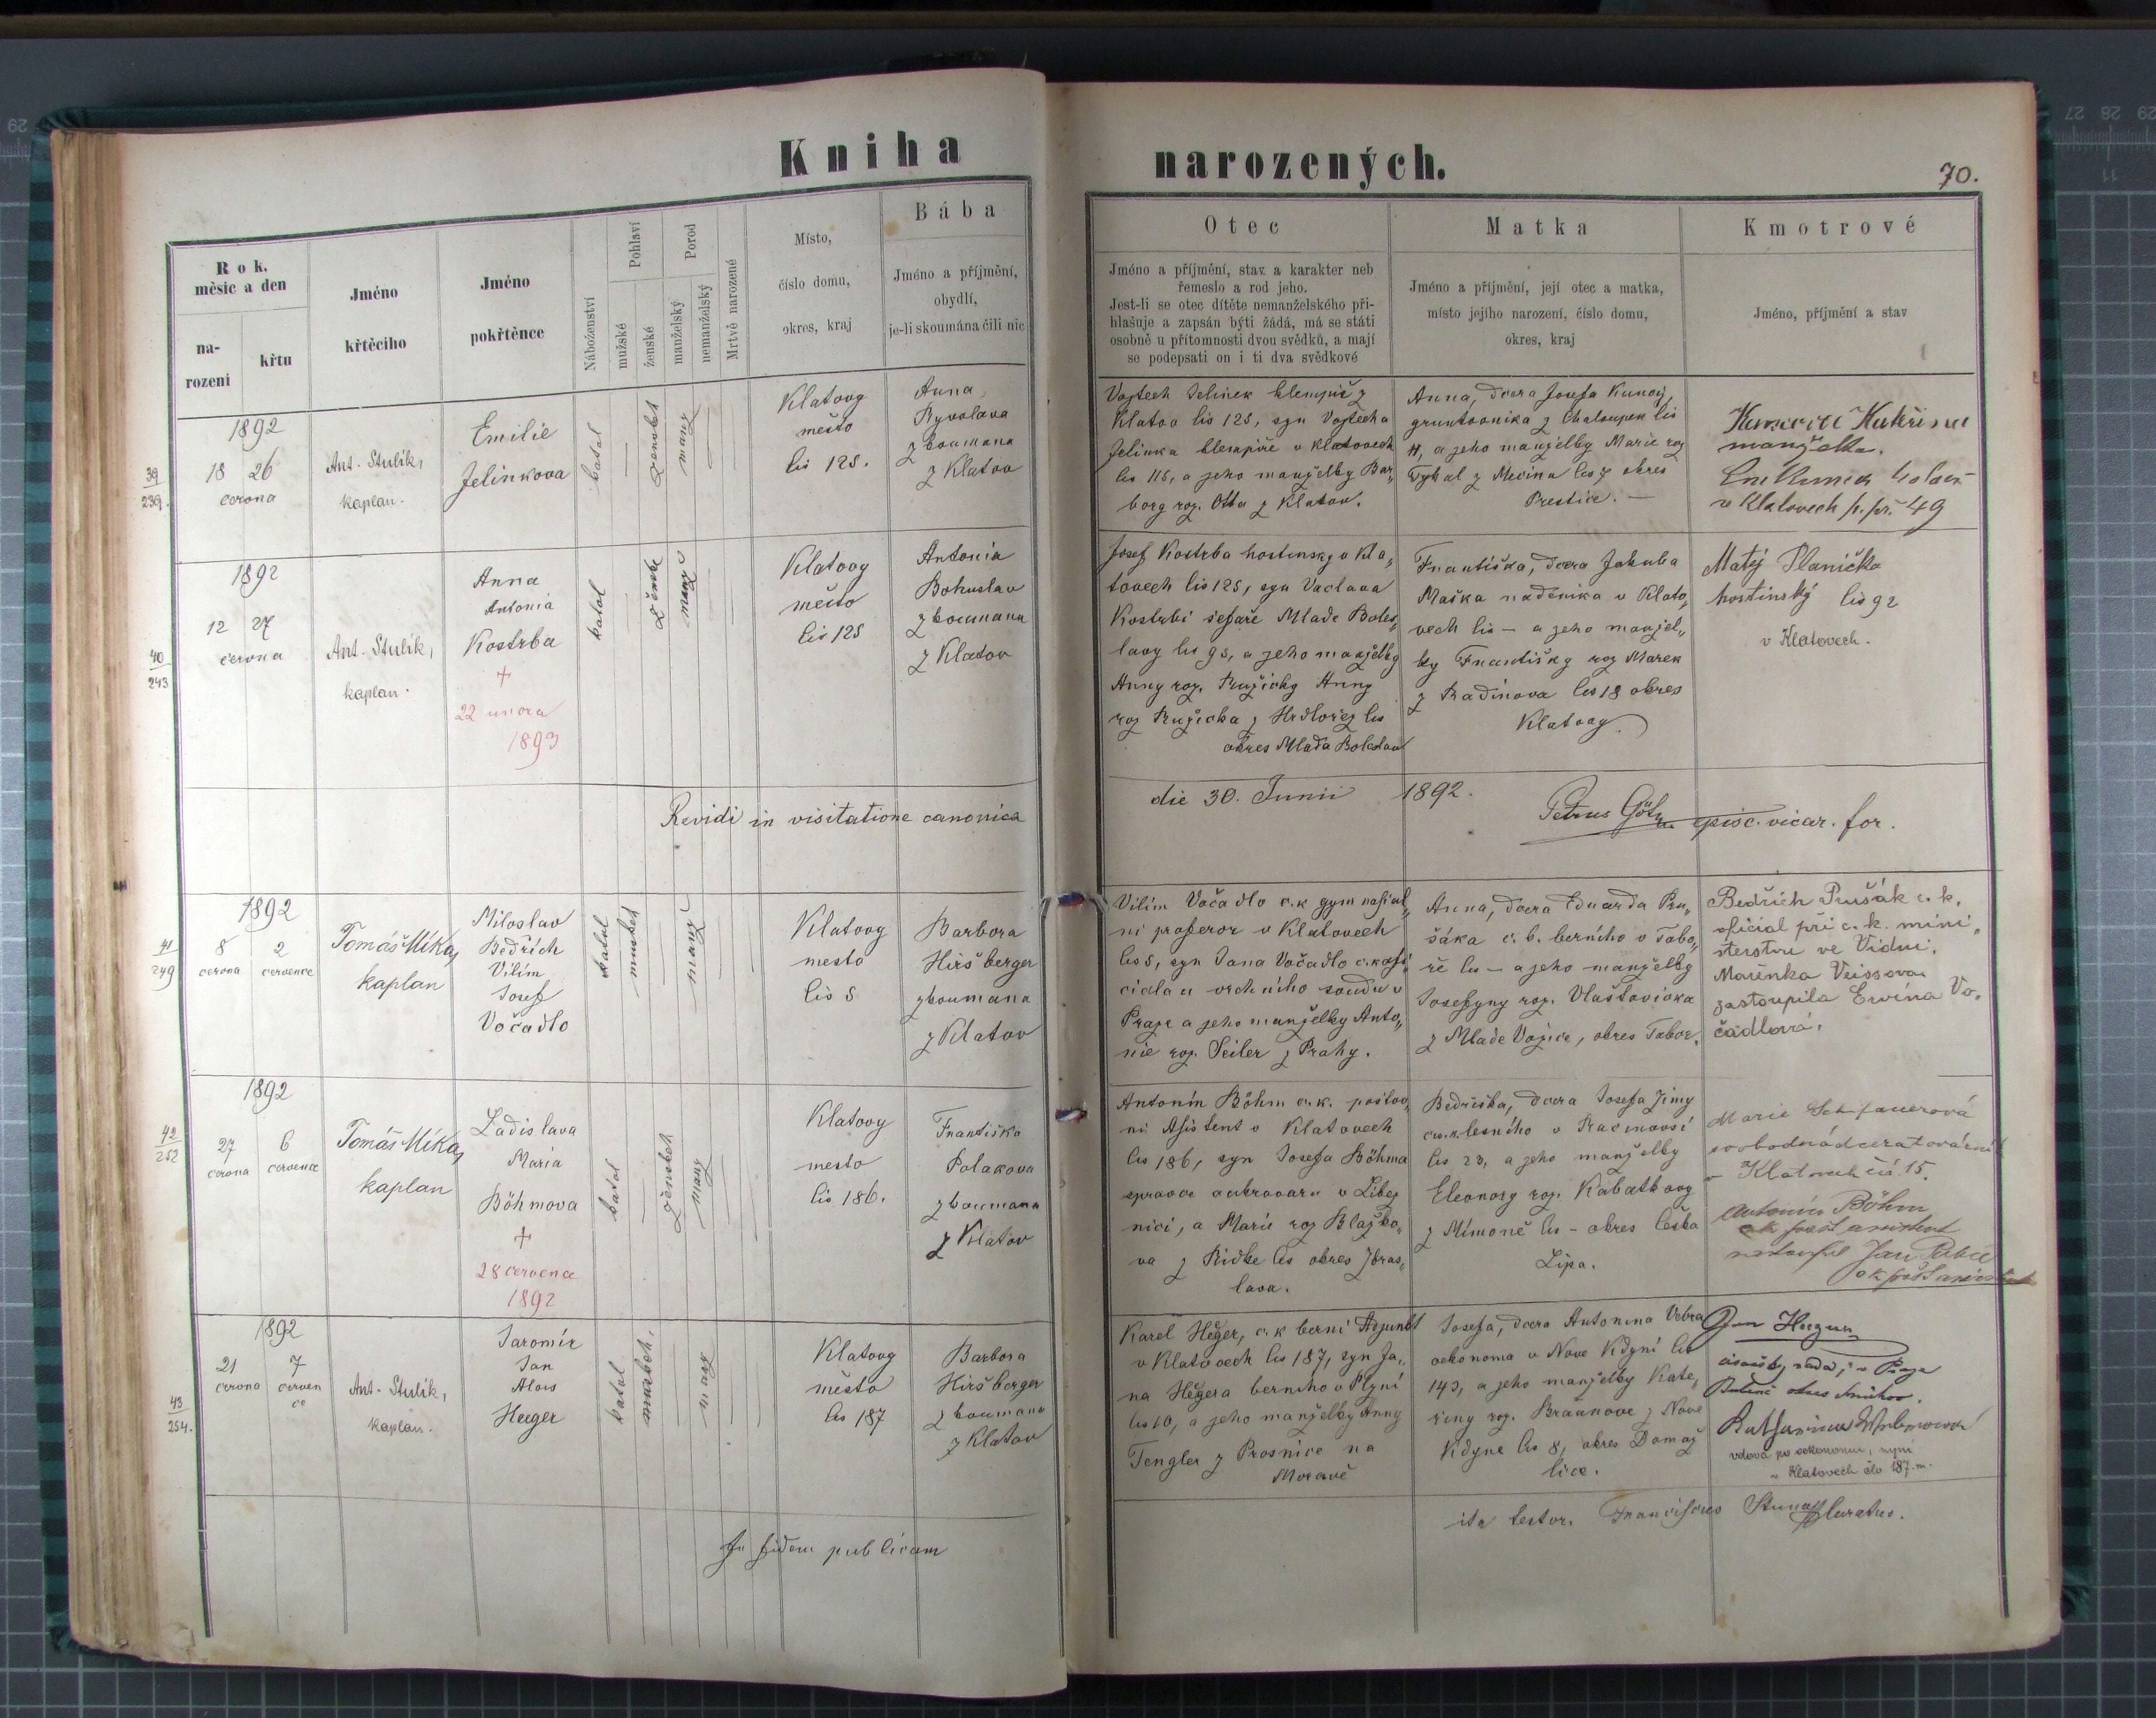 Kniha
narozených.
70.
Rok,
měsic a den
na-
rozeni
křtu
Jméno
křtěcího
Jméno
pokřtěnce
Náboženství
Pohlaví
mužské
ženské
Porod
manželský
nemanželský
Mrtvě narozené
Místo,
číslo domu,
okres, kraj
Bába
Jméno a příjmění,
obydlí,
je-li skoumána čili nic
Otec
Jméno a příjmění, stav a karakter neb
řemeslo a rod jeho.
Jest-li se otec dítěte nemanželského při-
hlašuje a zapsán býti žádá, má se státi
osobně u přítomnosti dvou svědků, a mají
se podepsati on i ti dva svědkové
Matka
Jméno a příjmění, její otec a matka,
místo jejího narození, číslo domu,
okres, kraj
Kmotrové
Jméno, příjmění a stav
39
239.
1892
18 26
cerona
Ant. Stulík,
kaplan.
Emilie
Jelinkova
katol
ženské
manž
Klatovy
město
čis 128.
Anna
Ryvolova
zkoumana
z Klatov
Vojtech Jelinek klempíř z
Klatov čis 128, syn Vojtěcha
Jelinka klempíře v Klatovech
čis 118, a jeho manželky Bar„
bory roz. Otta z Klatov.
Anna, dcera Josefa
gruntovnika z Chaloupek čis
11, a jeho manželky Marie roz
Tykal z Mecina čis 7 okres
Prestice. —
Kateřina
manželka.
v Klatovech č. pr. 49
40
243
1892
12 27
cerona
Ant. Stulík,
kaplan.
Anna
Antonia
Kostrba
+
22 unora
1893
katol
ženské
manž
Klatovy
město
čis 128
Antonia
Bohuslav
zkoumana
z Klatov
Josef Kostrba hostinsky v Kla„
tovech čis 128, syn Vaclava
Kostrbi šefaře Mlade Boles„
lavy čis 98, a jeho manželky
Anny roz. Ružičky Anny
roz Ružička z Hrdlořez čis
okres Mlada Boleslav
Františka, dcera Jakuba
Maška naděnika v Klato„
vech čis — a jeho manžel„
ky Františky roz Marek
z Radinova čis 18 okres
Klatovy.
Matěj Planička
hostinský čis 92
v Klatovech.
Revidi in visitatione canonica
die 30. Junii 1892.
Petrus Götz episc. vicar. for.
41
249
1892
8 2
cerona cervence
Tomáš Mika,
kaplan
Miloslav
Bedřich
Vilím
Josef
Vočadlo
katol
mužské
manž
Klatovy
mesto
čis 8
Barbora
Hiršberger
zkoumana
z Klatov
Vilím Vočadlo c.k gymnasial„
ni profesor v Klatovech
čis 8, syn Jana Vočadlo c.k ofi
ciala u vrchniho soudu v
Praze a jeho manželky Anto„
nie roz. Seiler z Prahy.
Anna, dcera Eduarda Pru„
šáka c. k. berniho v Tabo„
ře čis — a jeho manželky
Josefyny roz. Vlaštovička
z Mlade Vožice, okres Tabor.
Bedřich Prušák c. k.
oficiál při c. k. mini„
sterstvu ve Vídni.
Mařenka Veissova
zastoupila Ervína Vo„
čadlová.
42
252
1892
27 6
cerona cervence
Tomáš Mika,
kaplan
Ladislava
Maria
Böhmova
+
28 cervence
1892
katol
ženské
manž
Klatovy
mesto
čis 186.
Františka
Polakova
zkoumana
z Klatov
Antonín Böhm c. k. poštov„
ni Asistent v Klatovech
čis 186, syn Josefa Böhma
spravce cukrovaru v Libez
nici, a Marie roz Blažko„
va z Ridke čis okres Jbras„
lava.
Bedřiška, dcera Josefa Zimy
lesniho v Racinovsi
čis 23, a jeho manželky
Eleonory roz. Kabatkovy
z Mimoně čis - okres Česka
Lipa.
Marie Schifauerová
svobodná dcera továrníka
v Klatovech čís 15.
Antonín Böhm
c.k. pošt asistent
zastoupil Jan
c k pošt asistent
43
254.
1892
21 7
cerona cerven
ce
Ant. Stulík,
kaplan.
Jaromír
Jan
Alois
Heeger
katol
mužské
manž
Klatovy
město
čis 187
Barbora
Hiršberger
zkoumana
z Klatov
Karel Heger, c. k berni Adjunkt
v Klatovech čis 187, syn Ja„
na Hegera berniho v Plzni
čis 10, a jeho manželky Anny
Tengler z Prosnice na
Moravě
Josefa, dcera Antonina Vrbra
oekonoma v Nove Kdyni čis
143, a jeho manželky Kate„
řiny roz. Braunove z Nove
Kdyne čis 8, okres Domaž
lice.
Jan Heeger
císařský rada, v Praze
vdova po oekonomu, nyni
v Klatovech čílo 187. m.
In fidem publicam
ita testor. Franciscus Curatus.